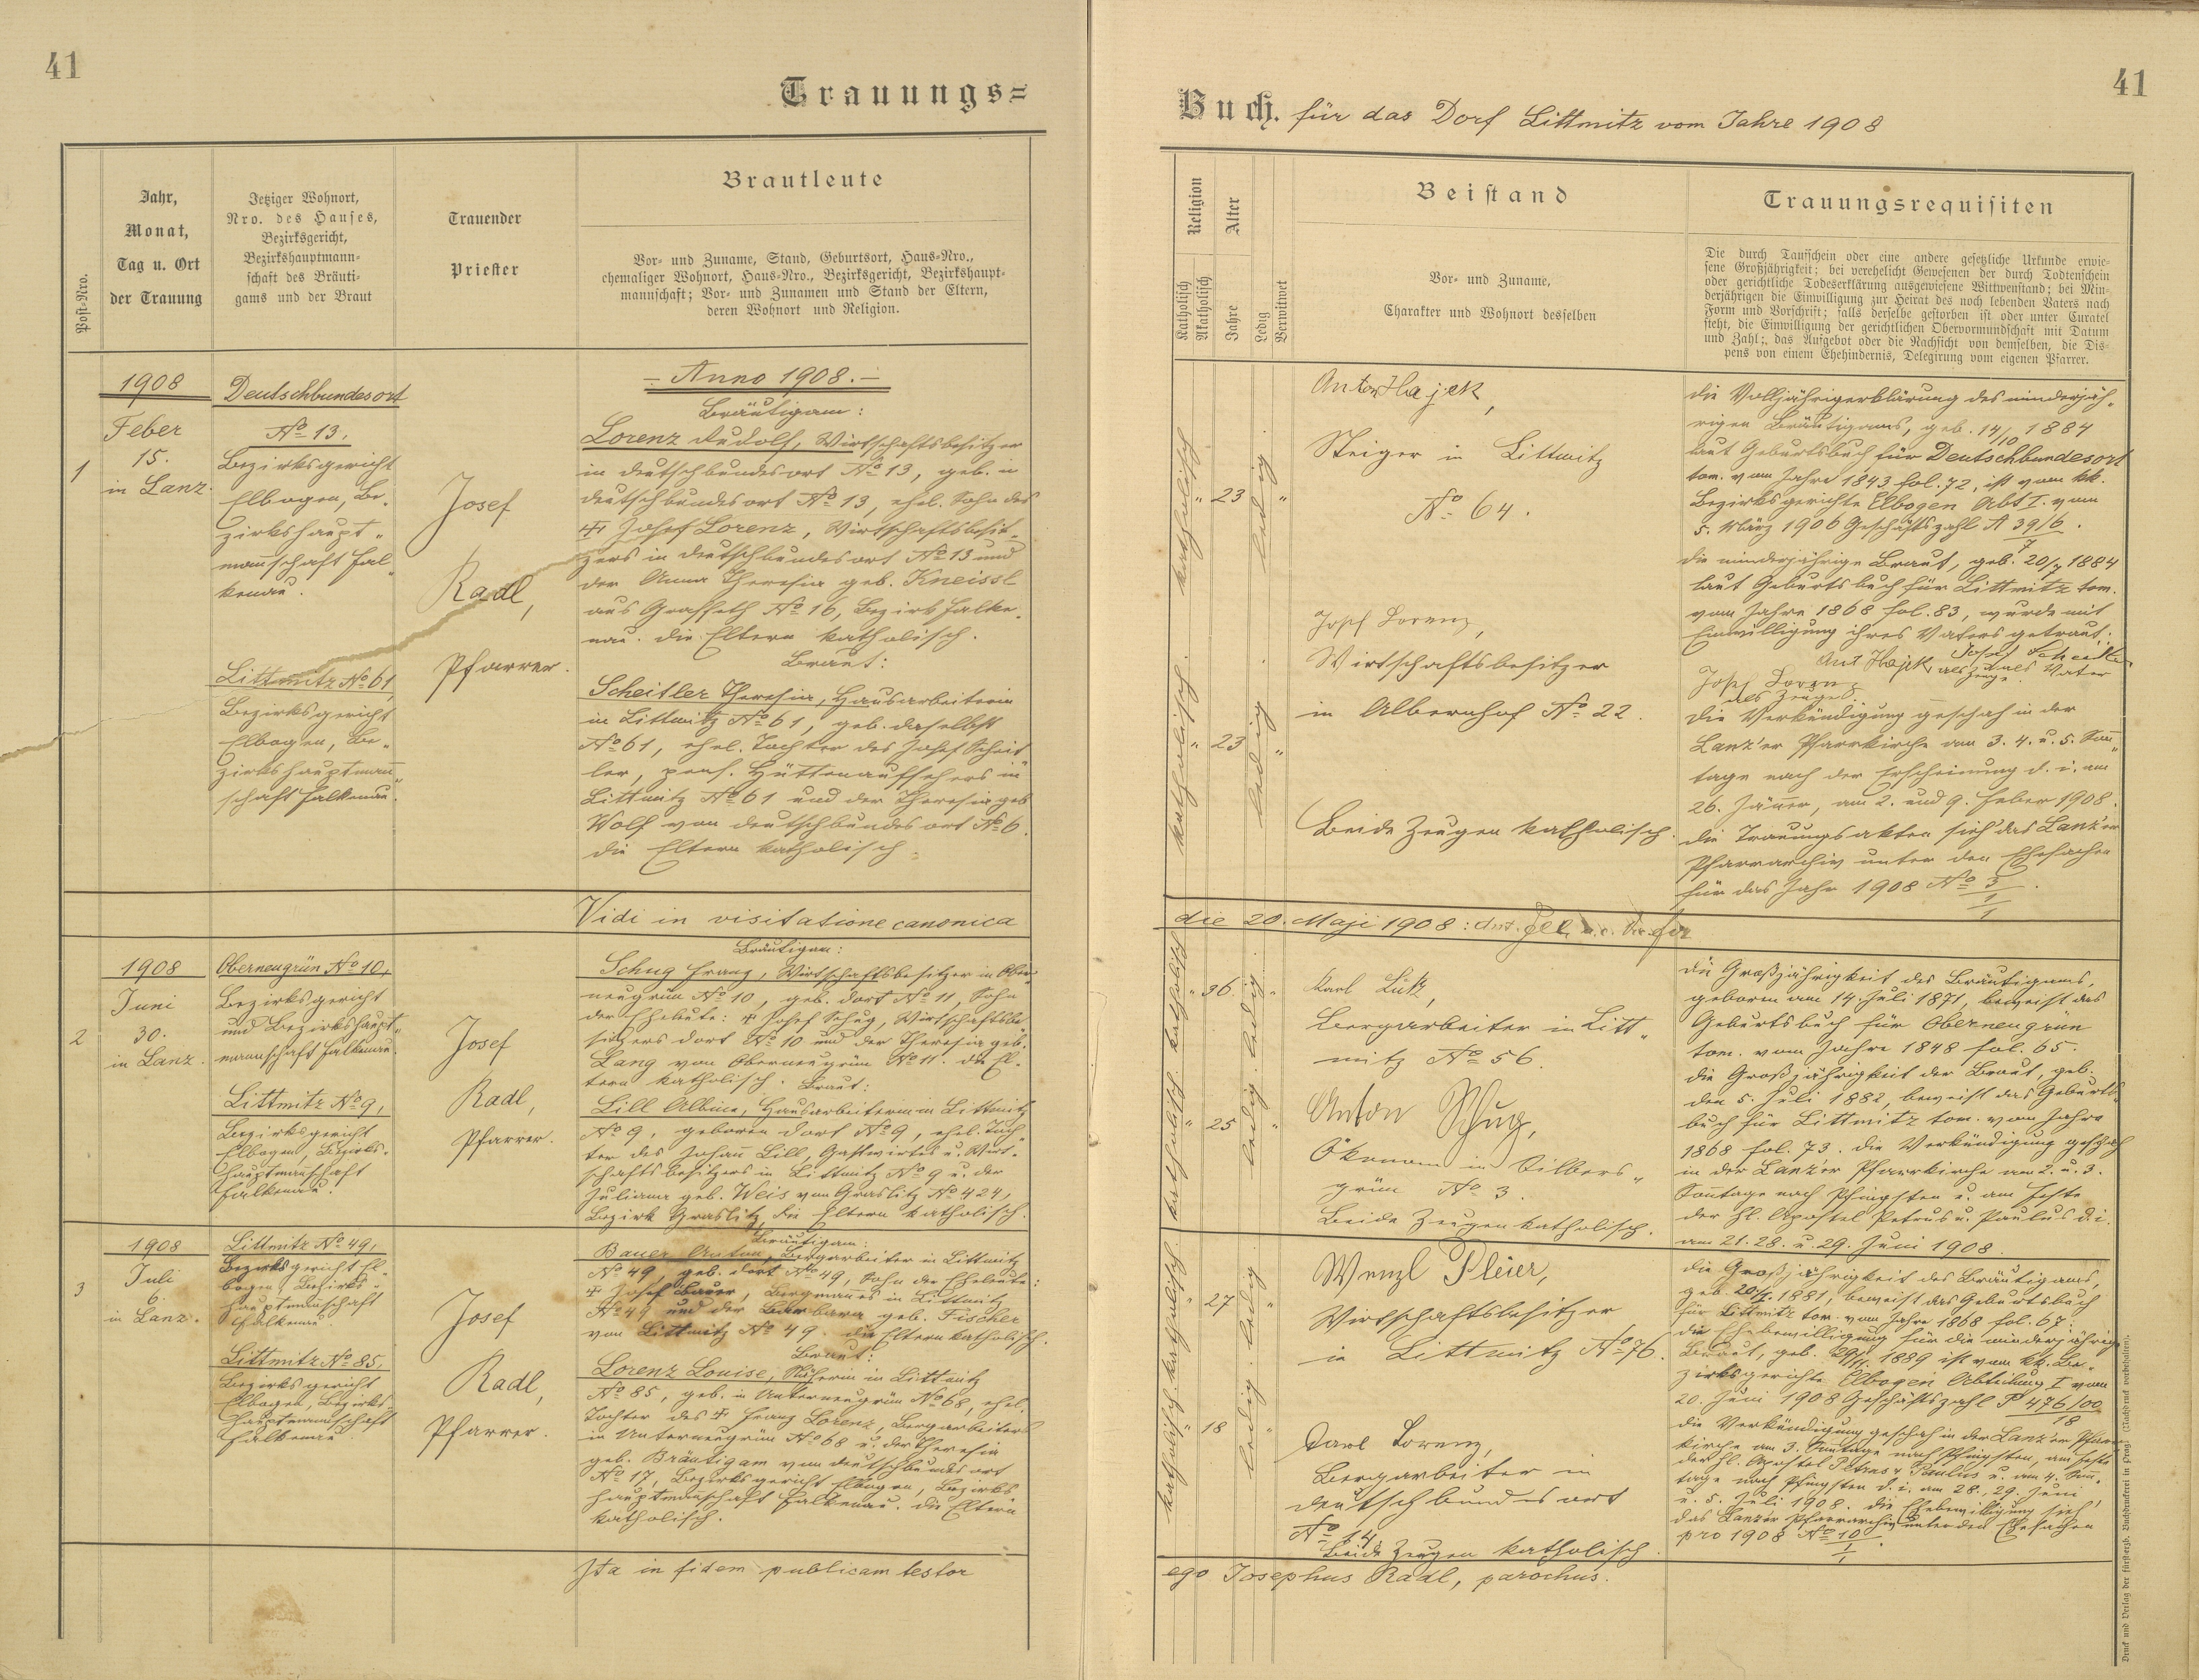 41
Trauungs=
Post=Nro.
Jahr,
Monat,
Tag u. Ort
der Trauung
Jetziger Wohnort,
Nro. des Hauses,
Bezirksgericht,
Bezirkshauptmann=
schaft des Bräuti=
gams und der Braut
Trauender
Priester
Brautleute
Vor= und Zuname, Stand, Geburtsort, Haus=Nro.,
ehemaliger Wohnort, Haus=Nro., Bezirksgericht, Bezirkshaupt=
mannschaft; Vor= und Zunamen und Stand der Eltern,
deren Wohnort und Religion.
1
1908
Feber
15.
in Lanz.
Deutschbundesort
No 13.
Bezirksgericht
Elbogen, Be„
zirkshaupt„
mannschaft Fal„
kenau.
Littmitz No 61
Bezirksgericht
Elbogen, Be„
zirkshauptmañ„
schaft Falkenau.
Josef
Radl,
Pfarrer.
– Anno 1908. –
Bräutigam:
Lorenz Rudolf, Wirtschaftsbesitzer
in Deutschbundesort No 13, geb. in
Deutschbundesort No 13, ehel. Sohn des
✝ Josef Lorenz, Wirtschaftsbesit„
zers in Deutschbundesort No 13 und
der Anna Theresia geb. Kneissl
aus Grasseth No 16, Bezirk Falke„
nau. Die Eltern katholisch.
Braut:
Scheitler Theresia, Hausarbeiterin
in Littmitz No 61, geb. daselbst
No 61, ehel. Tochter des Josef Scheit
ler, pens. Hüttenaufsehers in
Littmitz No 61 und der Theresia geb
Wolf von Deutschbundesort No 6.
Die Eltern katholisch.
Vidi in visitatione canonica
2
1908
Juni
30.
in Lanz.
Oberneugrün No 10,
Bezirksgericht
und Bezirkshaupt„
mannschaft Falkenau.
Littmitz No 9,
Bezirksgericht
Elbogen, Bezirks„
hauptmañschaft
Falkenau.
Josef
Radl,
Pfarrer.
Bräutigam:
Schug Franz, Wirtschaftsbesitzer in Ober„
neugrün No 10, geb. dort No 11, Sohn
der Eheleute: ✝ Josef Schug, Wirtschaftsbe„
sitzers dort No 10 und der Theresia geb.
Lang von Oberneugrün No 11. Die El„
tern katholisch. Braut:
Lill Albine, Hausarbeiterin in Littmitz
No 9, geboren dort No 9, ehel. Toch„
ter des Johañ Lill, Gastwirtes u. Wirt„
schaftsbesitzers in Littmitz No 9 u. der
Juliana geb. Weis von Graslitz No 424,
Bezirk Graslitz, die Eltern katholisch.
3
1908
Juli
6.
in Lanz.
Littmitz No 49,
Bezirksgericht El„
bogen, Bezirks„
hauptmañschaft
Falkenau.
Littmitz No 85,
Bezirksgericht
Elbogen, Bezirks„
hauptmannschaft
Falkenau.
Josef
Radl,
Pfarrer.
Bräutigam:
Bauer Anton, Bergarbeiter in Littmitz
No 49 geb. dort No 49, Sohn der Eheleute:
✝ Josef Bauer, Bergmannes in Littmitz
No 49 und der Barbara geb. Fischer
von Littmitz No 49. Die Eltern katholisch.
Braut:
Lorenz Louise, Näherin in Littmitz
No 85, geb. in Unterneugrün No 68, ehel.
Tochter des ✝ Franz Lorenz, Bergarbeiters
in Unterneugrün No 68 u. der Theresia
geb. Bräutigam von Deutschbundesort
No 17, Bezirksgericht Elbogen, Bezirks
hauptmañschaft Falkenau. Die Eltern
katholisch.
Ita in fidem publicam testor
41
Buch. für das Dorf Littmitz vom Jahre 1908
Religion
Katholisch
Akatholisch
Alter
Jahre
Ledig
Verwitwet
Beistand
Vor= und Zuname,
Charakter und Wohnort desselben
Trauungsrequisiten
Die durch Taufschein oder eine andere gesetzliche Urkunde erwie=
sene Großjährigkeit; bei verehelicht Gewesenen der durch Todtenschein
oder gerichtliche Todeserklärung ausgewiesene Wittwenstand; bei Min=
derjährigen die Einwilligung zur Heirat des noch lebenden Vaters nach
Form und Vorschrift; falls derselbe gestorben ist oder unter Curatel
steht, die Einwilligung der gerichtlichen Obervormundschaft mit Datum
und Zahl;. das Aufgebot oder die Nachsicht von demselben, die Dis=
pens von einem Ehehindernis, Delegirung vom eigenen Pfarrer.
katholisch
„ 23
ledig
„
katholisch.
„ 23
ledig
„
Anton Hajek,
Steiger in Littmitz
No 64.
Josef Lorenz,
Wirtschaftsbesitzer
in Albernhof No 22.
Beide Zeugen katholisch.
die Volljährigerklärung des minderjäh„
rigen Bräutigams, geb. 14/10 1884
laut Geburtsbuch für Deutschbundesort
tom. vom Jahre 1843 fol. 72, ist vom kk.
Bezirksgerichte Elbogen Abt I. vom
5. März 1906 Geschäftszahl A 39/6
7.
die minderjährige Braut, geb. 20/7 1884
laut Geburtsbuch für Littmitz tom.
vom Jahre 1868 fol. 83, wurde mit
Einwilligung ihres Vaters getraut:
Josef Scheitler
Ant Hajek als Zeuge. als Vater
Josef Lorenz
als Zeuge.
Die Verkündigung geschah in der
Lanz'er Pfarrkirche am 3. 4. u. 5. Soñ„
tage nach der Erscheinung d. i. am
26. Jäner, am 2. und 9. Feber 1908.
Die Trauungsakten sieh das Lanz'er
Pfarrarchiv unter den Ehesachen
für das Jahr 1908 No 3/1/1.
die 20. Maji 1908:
katholisch
„ 36.
ledig
„
katholisch.
„ 25
ledig.
„
Karl Lutz,
Bergarbeiter in Litt„
mitz No 56.
Anton Schug,
Ökonom in Silbers„
grün No 3.
Beide Zeugen katholisch.
die Großjährigkeit des Bräutigams,
geboren am 14. Juli 1871, beweist das
Geburtsbuch für Oberneugrün
tom. vom Jahre 1848 fol. 65.
die Großjährigkeit der Braut, geb.
den 5. Juli 1882, beweist das Geburts„
buch für Littmitz tom. vom Jahre
1868 fol. 73. Die Verkündigung geschah
in der Lanz'er Pfarrkirche am 2. u. 3.
Soñtage nach Pfingsten u. am Feste
der hl. Apostel Petrus u. Paulus d. i.
am 21. 28. u. 29. Juni 1908.
katholisch
„ 27
ledig
„
katholisch
„ 18
ledig.
„
Wenzl Pleier,
Wirtschaftsbesitzer
in Littmitz No 76.
Carl Lorenz,
Bergarbeiter in
Deutschbundesort
No 14.
Beide Zeugen katholisch.
die Großjährigkeit des Bräutigams,
1881, beweist das Geburtsbuch
für Littmitz tom. vom Jahre 1868 fol. 67.
die Ehebewilligung für die minderjährige
Braut, geb. 1889 ist vom kk. Be„
zirksgerichte Elbogen Abteilung I vom
20. Juni 1908 Geschäftszahl P 476/00
18
die Verkündigung geschah in der Lanz'er Pfarr„
kirche am 3. Sontage nach Pfingsten, am Feste
der hl. Apostel Petrus u. Paulus u. am 4. Soñ„
tage nach Pfingsten d. i. am 28., 29. Juni
u. 5. Juli 1908. Die Ehebewilligung sieh
das Lanz'er Pfarrarchiv unter den Ehesachen
pro 1908 No 10/1/1.
ego Josephus Radl, parochus.
Druck und Verlag der fürsterzb. Buchdruckerei in Prag. (Nachdruck vorbehalten).